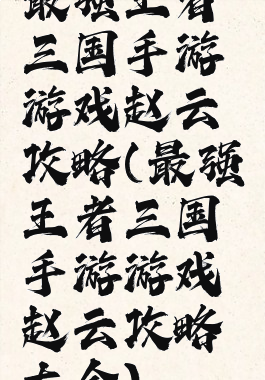 最强王者
三国手游
游戏赵云
攻略(最强
王者三国
手游游戏
赵云攻略
大全)